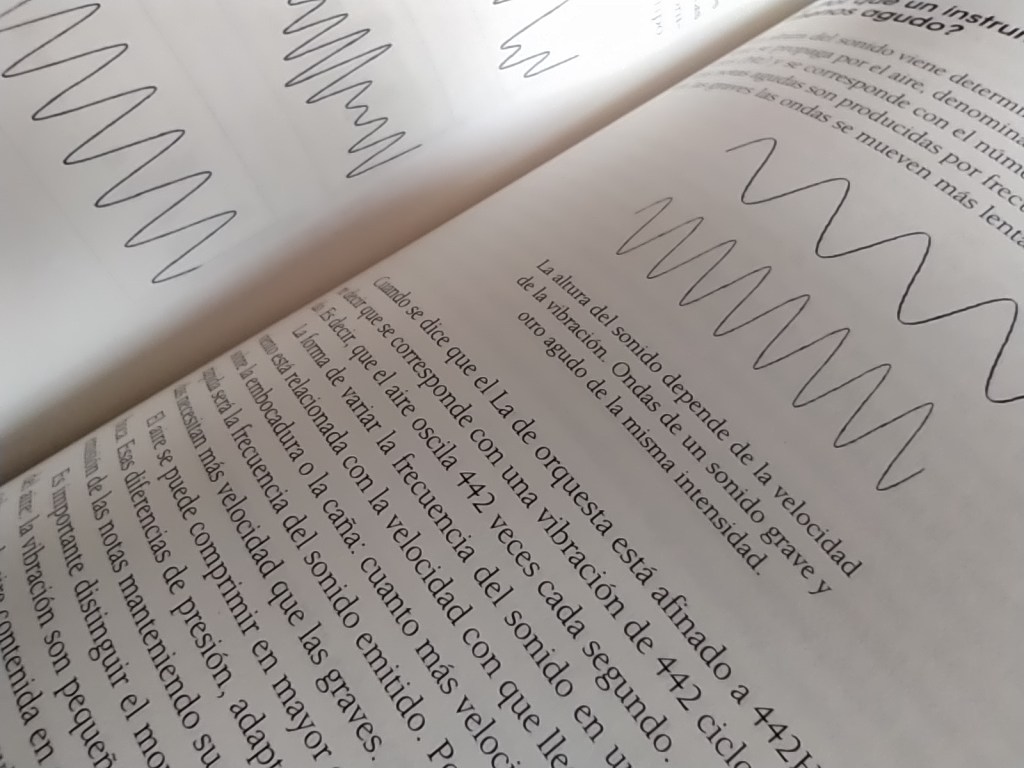 que un instru
agudo?
del sonido viene determin
propaga por el aire, denomina
y se corresponde con el núme
agudas son producidas por frec
graves las ondas se mueven más lenta
La altura del sonido depende de la velocidad
de la vibración. Ondas de un sonido grave y
otro agudo de la misma intensidad.
Cuando se dice que el La de orquesta está afinado a 442H
decir que se corresponde con una vibración de 442 ciclo
Es decir, que el aire oscila 442 veces cada segundo.
La forma de variar la frecuencia del sonido en u
está relacionada con la velocidad con que lle
la embocadura o la caña: cuanto más veloci
será la frecuencia del sonido emitido. Po
necesitan más velocidad que las graves.
El aire se puede comprimir en mayor
Esas diferencias de presión, adapt
emisión de las notas manteniendo su
Es importante distinguir el mo
aire: la vibración son pequeñ
contenida en